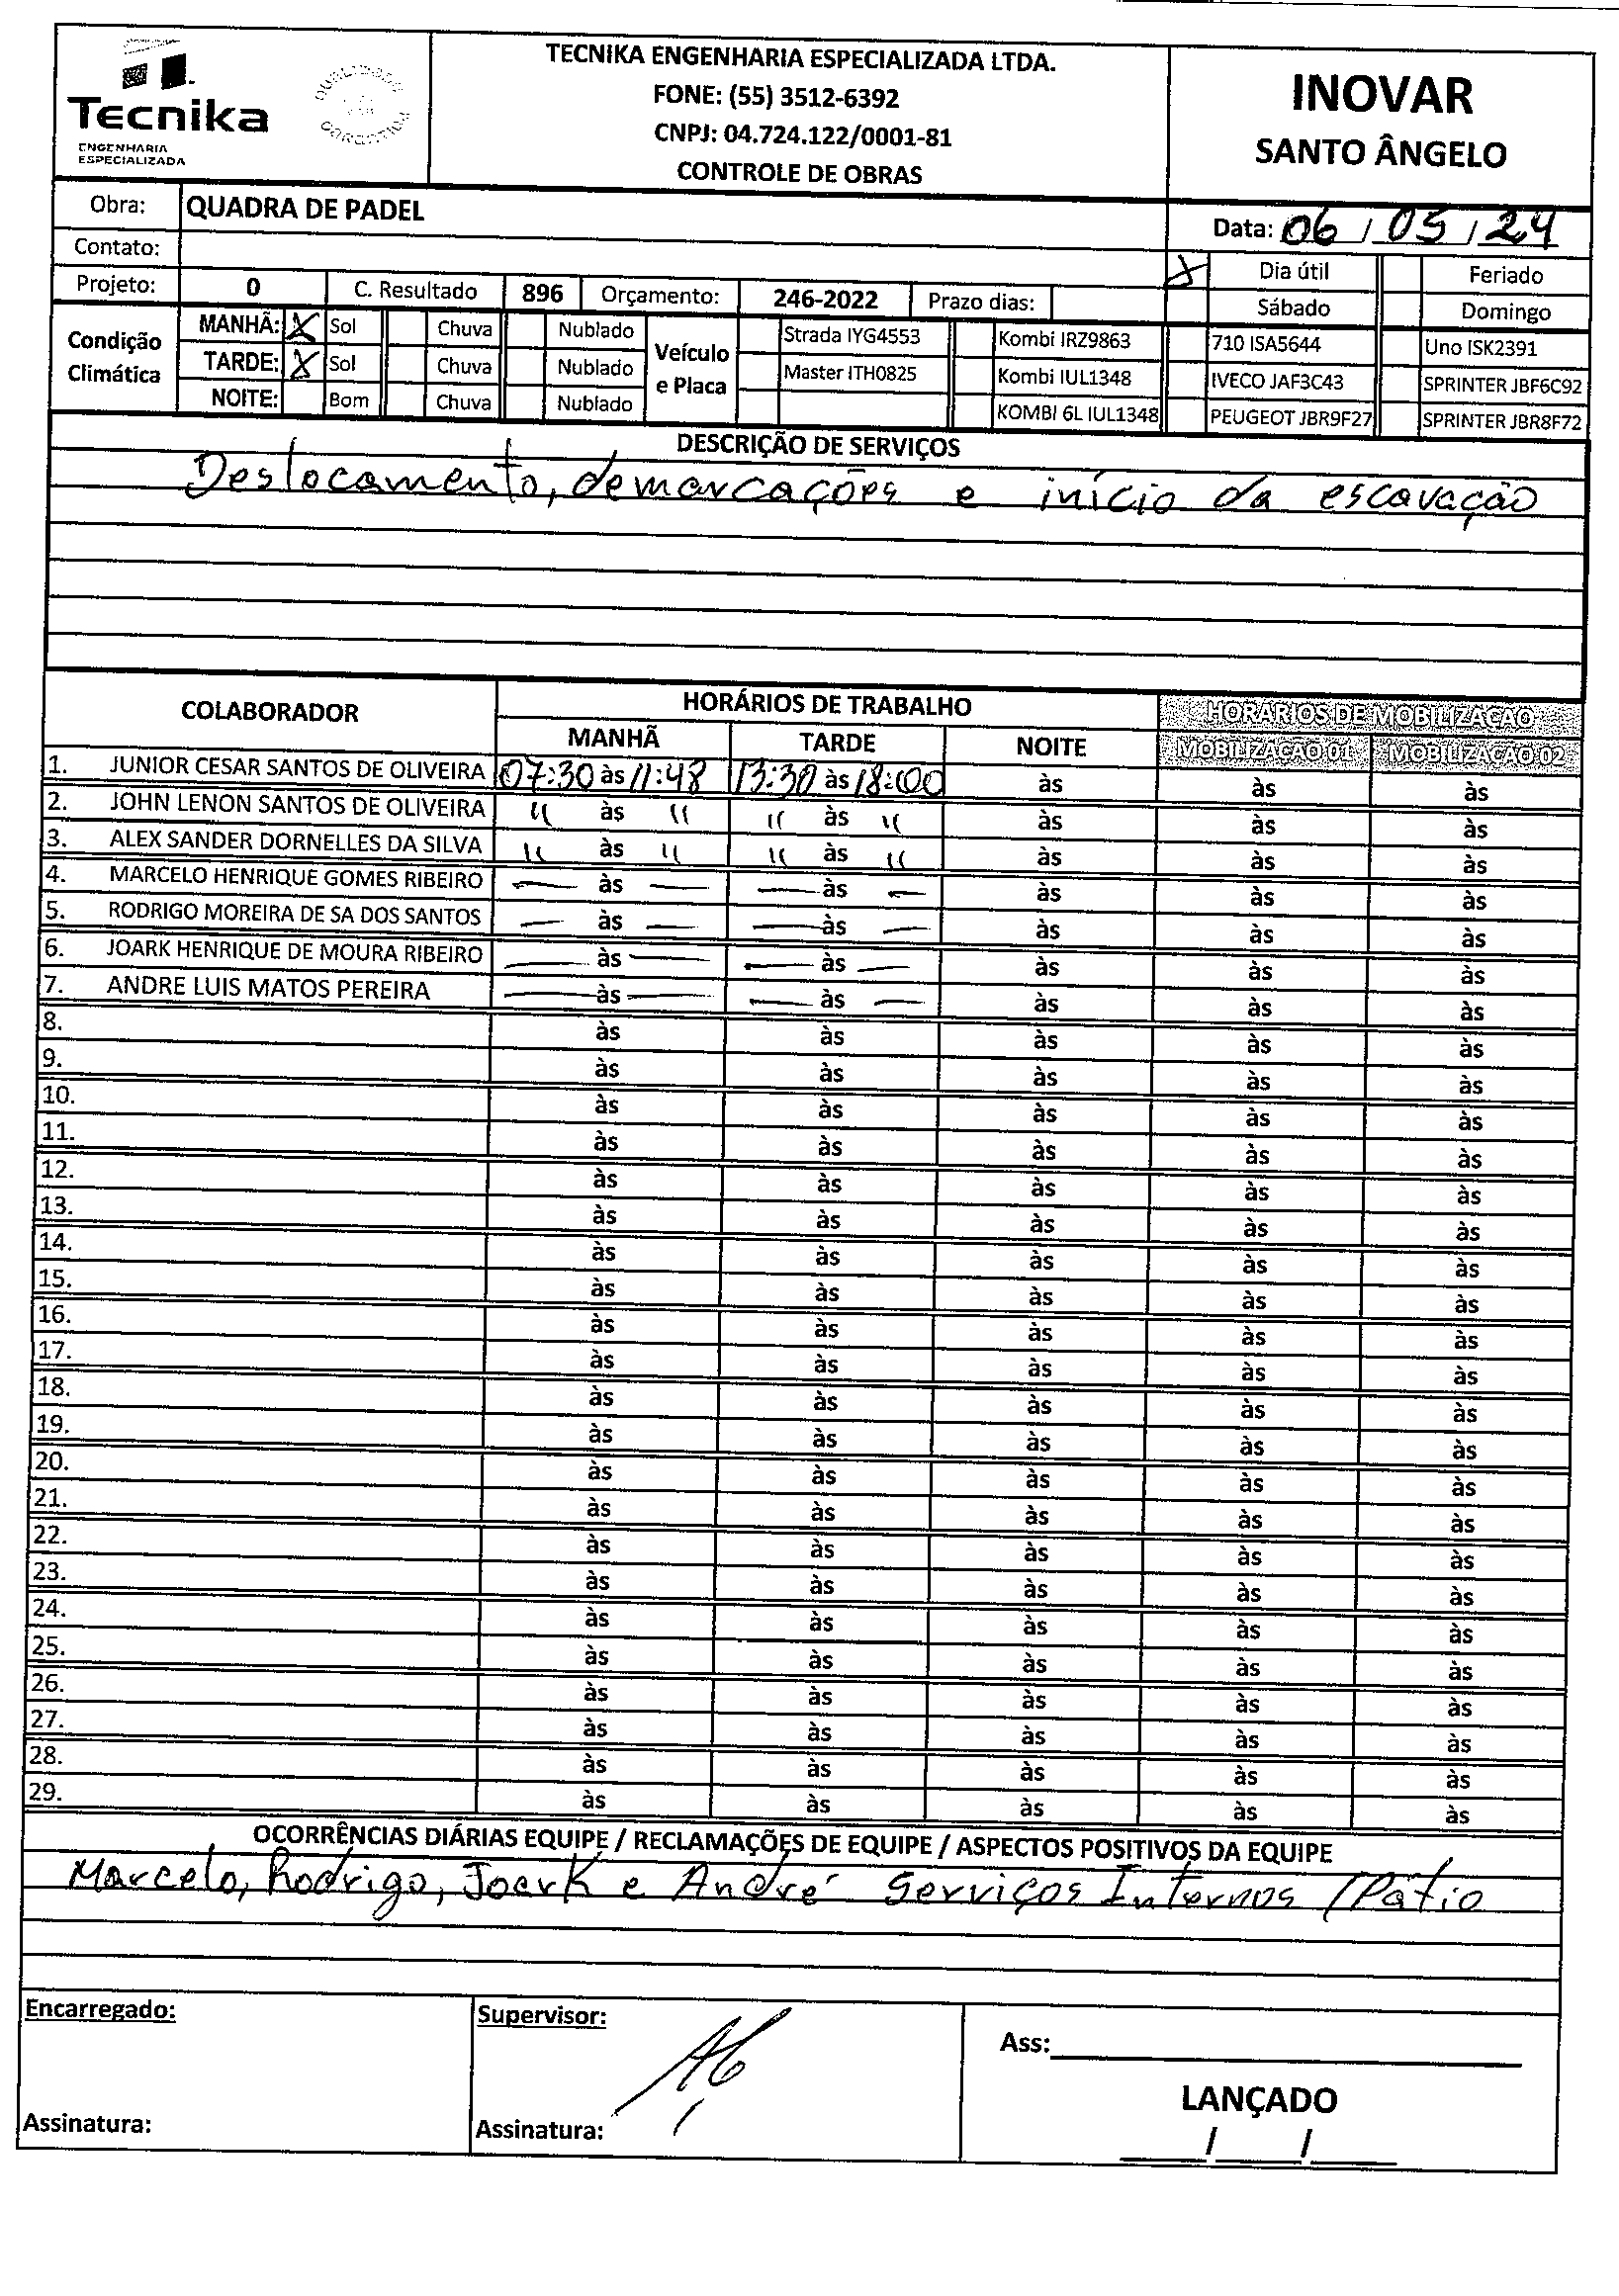 TECNIKA ENGENHARIA ESPECIALIZADA LTDA.
FONE: (55) 3512-6392
CNPJ: 04.724.122/0001-81
CONTROLE DE OBRAS
Tecnika
ENGENHARIA
ESPECIALIZADA
QUALIDADE
INOVAR
SANTO ÂNGELO
Obra: QUADRA DE PADEL
Data: 06 / 05 / 24
Contato:
X Dia útil Feriado
Projeto: 0 C. Resultado 896 Orçamento: 246-2022 Prazo dias:
Sábado Domingo
Condição Climática
MANHÃ: X Sol Chuva Nublado
TARDE: X Sol Chuva Nublado
NOITE: Bom Chuva Nublado
Veículo e Placa
Strada IYG4553 Kombi IRZ9863 710 ISA5644 Uno ISK2391
Master ITH0825 Kombi IUL1348 IVECO JAF3C43 SPRINTER JBF6C92
KOMBI 6L IUL1348 PEUGEOT JBR9F27 SPRINTER JBR8F72
DESCRIÇÃO DE SERVIÇOS
Deslocamento, demarcações e início da escavação
COLABORADOR HORÁRIOS DE TRABALHO HORÁRIOS DE MOBILIZAÇÃO
MANHÃ TARDE NOITE MOBILIZAÇÃO 01 MOBILIZAÇÃO 02
1. JUNIOR CESAR SANTOS DE OLIVEIRA 07:30 às 11:48 13:30 às 18:00 às às às
2. JOHN LENON SANTOS DE OLIVEIRA " às " " às " às às às
3. ALEX SANDER DORNELLES DA SILVA " às " " às " às às às
4. MARCELO HENRIQUE GOMES RIBEIRO — às — — às — às às às
5. RODRIGO MOREIRA DE SA DOS SANTOS — às — — às — às às às
6. JOARK HENRIQUE DE MOURA RIBEIRO — às — — às — às às às
7. ANDRE LUIS MATOS PEREIRA — às — — às — às às às
8. às às às às às
9. às às às às às
10. às às às às às
11. às às às às às
12. às às às às às
13. às às às às às
14. às às às às às
15. às às às às às
16. às às às às às
17. às às às às às
18. às às às às às
19. às às às às às
20. às às às às às
21. às às às às às
22. às às às às às
23. às às às às às
24. às às às às às
25. às às às às às
26. às às às às às
27. às às às às às
28. às às às às às
29. às às às às às
OCORRÊNCIAS DIÁRIAS EQUIPE / RECLAMAÇÕES DE EQUIPE / ASPECTOS POSITIVOS DA EQUIPE
Marcelo, Rodrigo, Joark e André Serviços Internos / Pátio
Encarregado:
Assinatura:
Supervisor:
Assinatura:
Ass:
LANÇADO
/ /